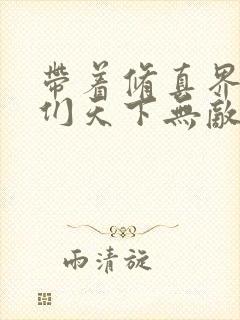 帶着脩真界
们天下無敵
雨清旋